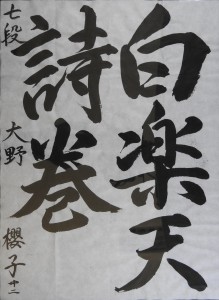 白楽天
詩巻
七段 大野 櫻子 十二